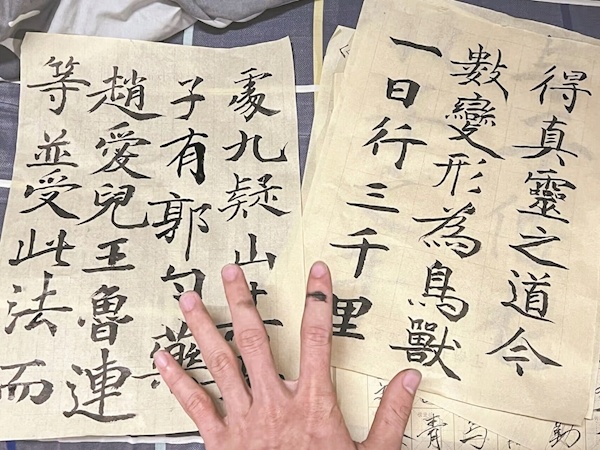 得真靈之道今
數變形為鳥獸
一日行三千里
處九疑山
子有郭勺藥
趙愛兒王魯連
等並受此法而
青
動